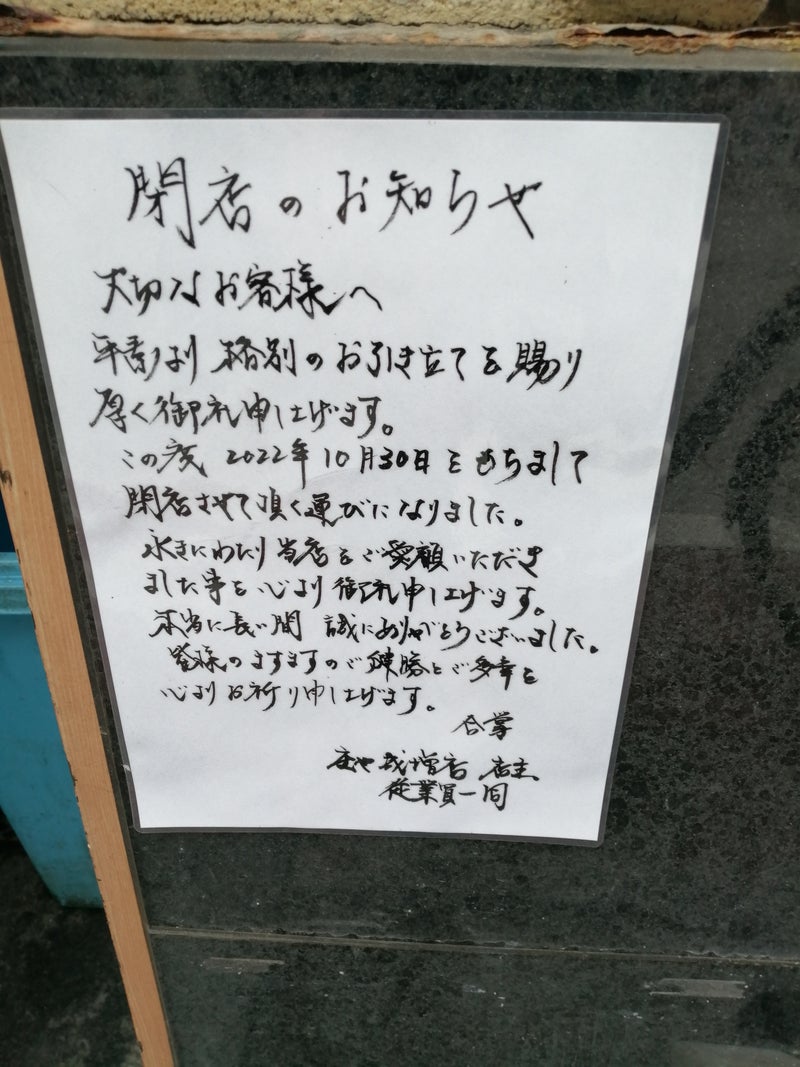 閉店のお知らせ
大切なお客様へ
平素より格別のお引き立てを賜り
厚く御礼申し上げます。
この度 2022年10月30日をもちまして
閉店させて頂く運びになりました。
永きにわたり当店をご愛顧いただき
ました事を心より御礼申し上げます。
本当に長い間 誠にありがとうございました。
皆様のますますのご健勝とご多幸を
心よりお祈り申し上げます。
合掌
庄や 店 店主
従業員一同